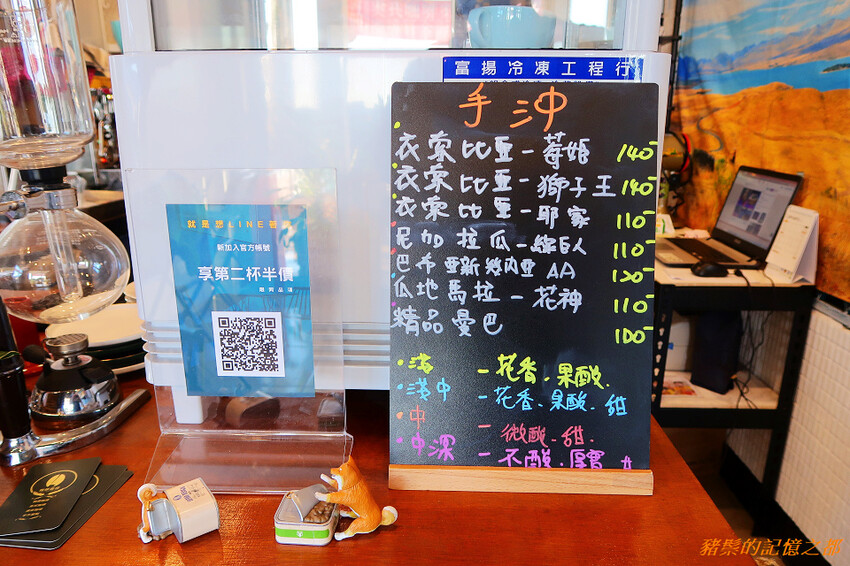 富揚冷凍工程行
手沖
衣索比亞-莓姬 140-
衣索比亞-獅子王 140-
衣索比亞-耶家 110-
尼加拉瓜-綠巨人 110-
巴布亞新幾內亞AA 120-
瓜地馬拉-花神 110-
精品曼巴 100-
·淺 -花香、果酸.
·淺中 -花香、果酸、甜
·中 -微酸、甜.
·中深 -不酸、厚實
就是想LINE著你
新加入官方帳號
享第二杯半價
豬鬃的記憶之都